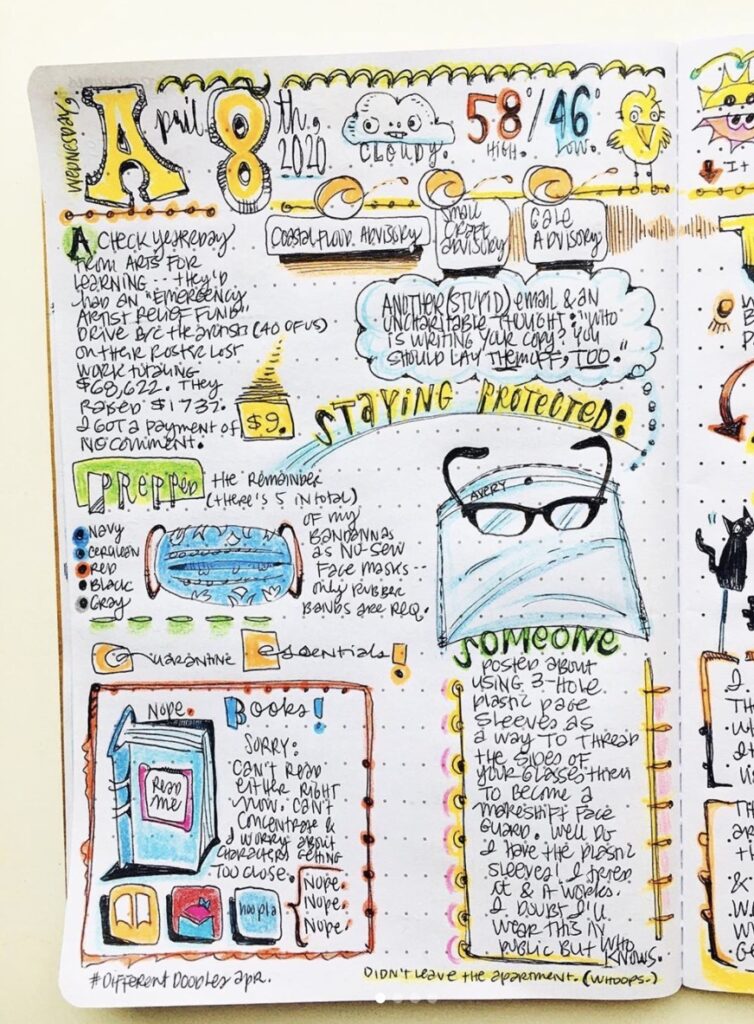 WEDNESDAY,
April 8th,
2020
CLOUDY.
58°/46°
HIGH. LOW.
COASTAL FLOOD ADVISORY
SMALL
CRAFT
ADVISORY
GALE
ADVISORY
A CHECK YESTERDAY
FROM ARTS FOR
LEARNING --- THEY'D
HAD AN "EMERGENCY
ARTIST RELIEF FUND"
DRIVE B/C THE ARTISTS (40 OF US)
ON THEIR ROSTER LOST
WORK TOTALING
$68,622. THEY
RAISED $1737.
I GOT A PAYMENT OF
$9.
NO COMMENT.
ANOTHER (STUPID) EMAIL & AN
UNCHARITABLE THOUGHT: "WHO
IS WRITING YOUR COPY? YOU
SHOULD LAY THEM OFF, TOO."
STAYING PROTECTED:
AVERY
PREPPED THE REMAINDER
(THERE'S 5 IN TOTAL)
OF MY
BANDANNAS
AS NO-SEW
FACE MASKS--
ONLY RUBBER
BANDS ARE REQ.
NAVY
CERULEAN
RED
BLACK
GRAY
Quarantine Essentials!
NOPE. Books!
READ
ME
SORRY:
CAN'T READ
EITHER RIGHT
NOW. CAN'T
CONCENTRATE &
I WORRY ABOUT
CHARACTERS GETTING
TOO CLOSE.
hoopla
NOPE.
NOPE.
NOPE.
SOMEONE
POSTED ABOUT
USING 3-HOLE
PLASTIC PAGE
SLEEVES AS
A WAY TO THREAD
THE SIDES OF
YOUR GLASSES THEM
TO BECOME A
MAKESHIFT FACE
GUARD. WELL DO
I HAVE THE PLASTIC
SLEEVES! I TRIED
IT & IT WORKS.
I DOUBT I'LL
WEAR THIS IN
PUBLIC BUT WHO
KNOWS.
#DIFFERENT DOODLES APR.
DIDN'T LEAVE THE APARTMENT. (WHOOPS.)
IT